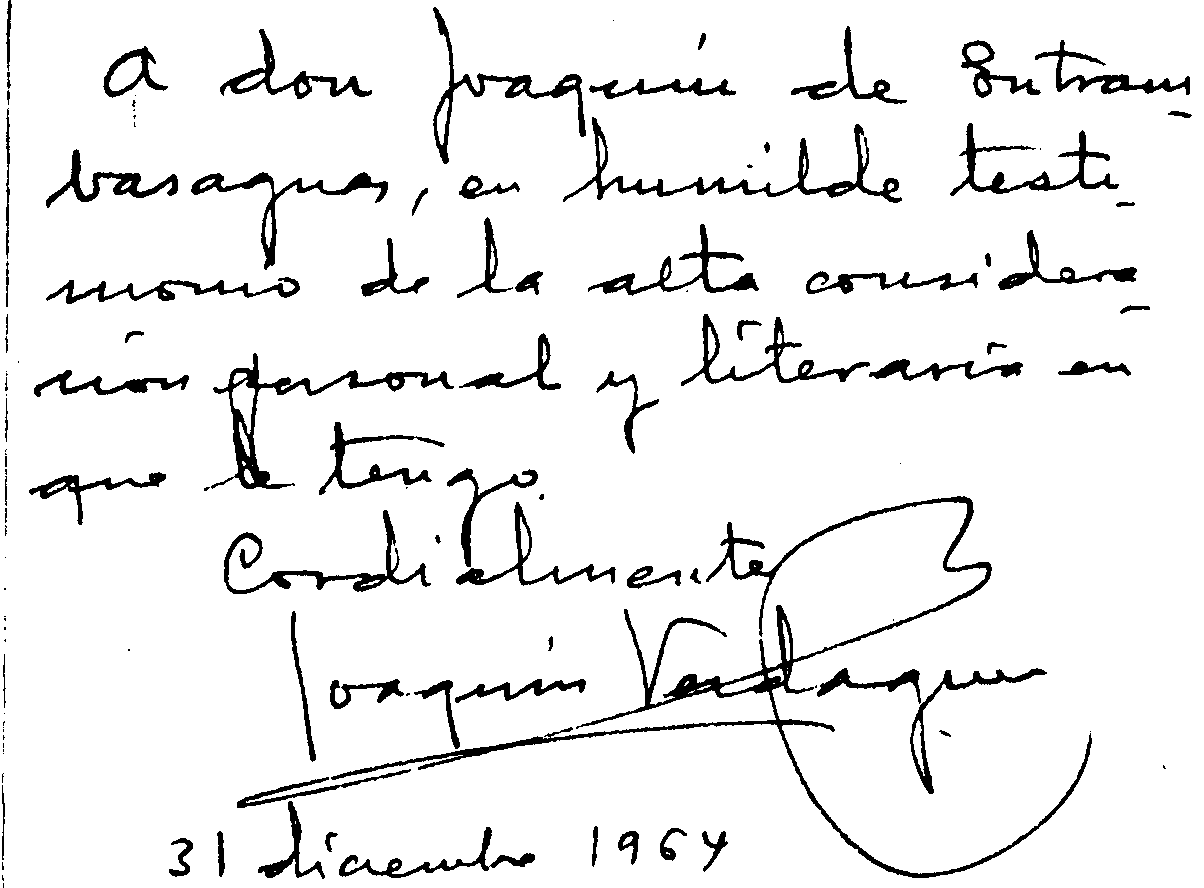 A don Joaquín de Entram-
basaguas, en humilde testi-
monio de la alta considera-
ción personal y literaria en
que le tengo.
Cordialmente
Joaquín Verdaguer
31 diciembre 1964